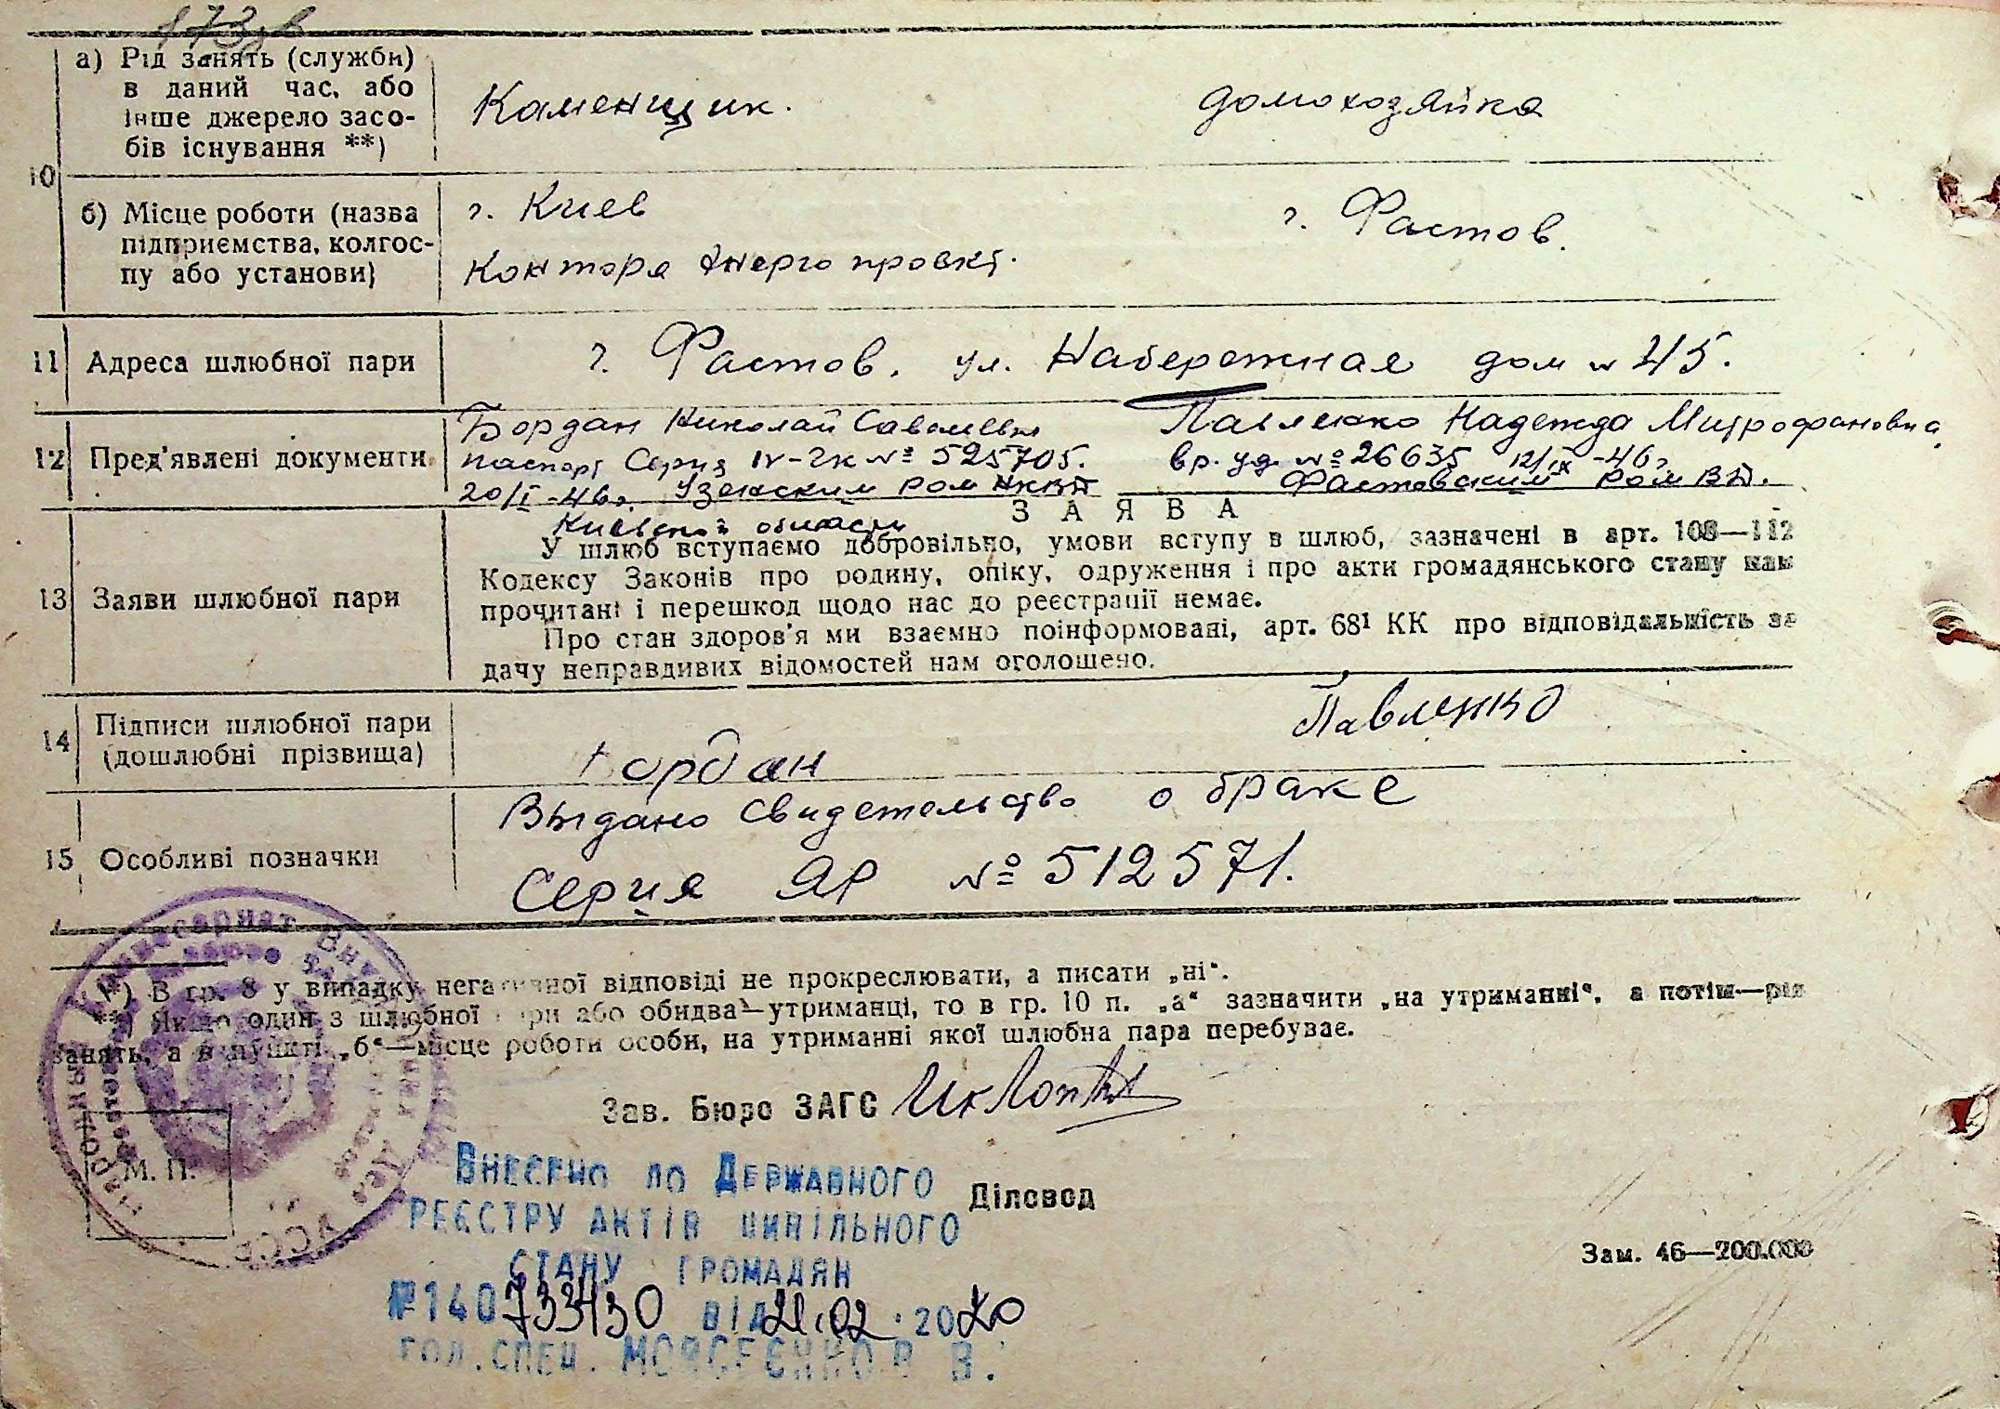 173
а) Рід занять (служби)
в даний час, або
інше джерело засо-
бів існування **)
Каменщик.
домохозяйка
10
б) Місце роботи (назва
підприємства, колгос-
пу або установи)
г. Киев
Контора Энерго
г. Фастов.
11 Адреса шлюбної пари
г. Фастов. ул. Набережная дом № 45.
12 Пред'явлені документи
Бордан Николай Савельевич
паспорт Серия IV-ЧК № 525705.
20/I-46г. Узенским РОМ НКВД
Киевской области
Павленко Надежда Митрофановна
вр. уд. № 26635 12/IX-46г.
Фастовским РОМ ВД.
13 Заяви шлюбної пари
ЗАЯВА
У шлюб вступаємо добровільно, умови вступу в шлюб, зазначені в арт. 108—112
Кодексу Законів про родину, опіку, одруження і про акти громадянського стану нам
прочитані і перешкод щодо нас до реєстрації немає.
Про стан здоров'я ми взаємно поінформовані, арт. 68¹ КК про відповідальність за
дачу неправдивих відомостей нам оголошено.
14 Підписи шлюбної пари
(дошлюбні прізвища)
Бордан
Павленко
15 Особливі позначки
Выдано Свидетельство о браке
Серия ЯР № 512571.
*) В гр. 8 у випадку негативної відповіді не прокреслювати, а писати „ні“.
**) Якщо один з шлюбної пари або обидва—утриманці, то в гр. 10 п. „а“ зазначити „на утриманні“, а потім—рід
занять, а в пункті „б“—місце роботи особи, на утриманні якої шлюбна пара перебуває.
Зав. Бюро ЗАГС
М. П.
Народный Комиссариат Внутренних Дел УССР
Діловод
Внесено до Державного
реєстру актів цивільного
стану громадян
№140733430 від 21.02.2020
гол.спец. Моисеенко В.В.
Зам. 46—200.000